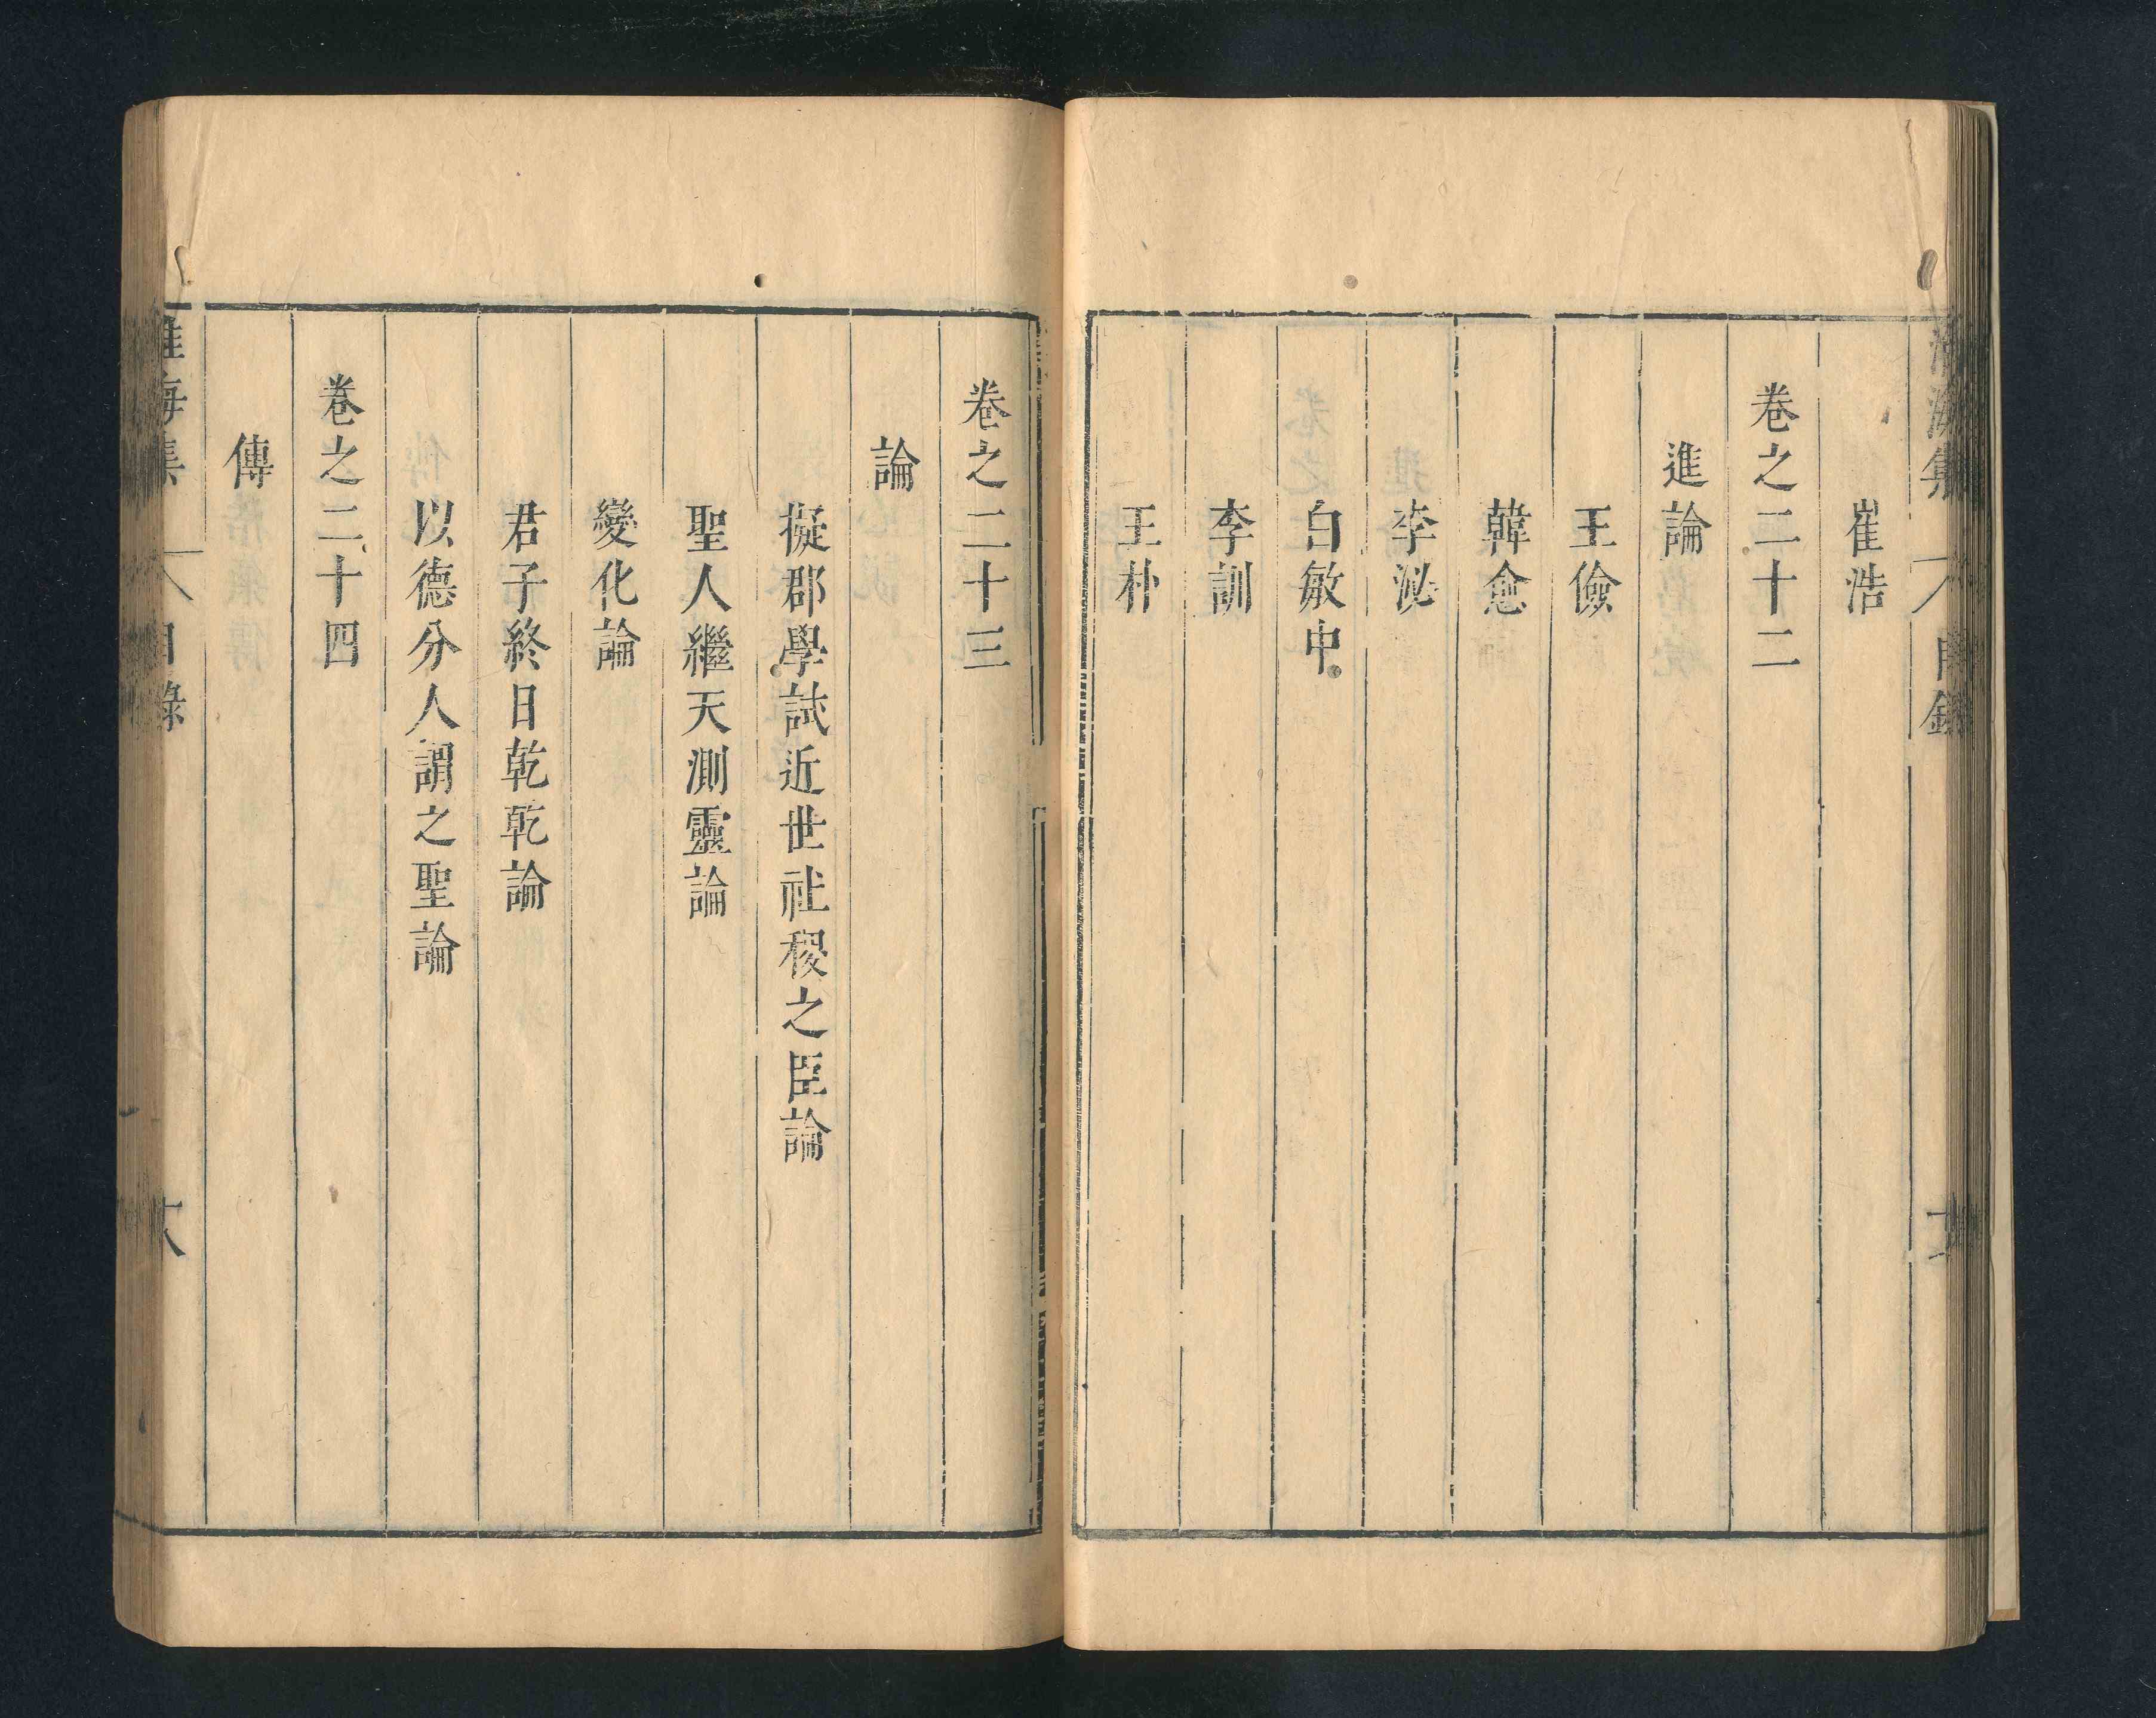 淮海集 目錄
崔浩
卷之二十二
進論
王儉
韓愈
李泌
白敏中
李訓
王朴
卷之二十三
論
擬郡學試近世社稷之臣論
聖人繼天測靈論
變化論
君子終日乾乾論
以德分人謂之聖論
卷之二十四
傳
淮海集 目錄